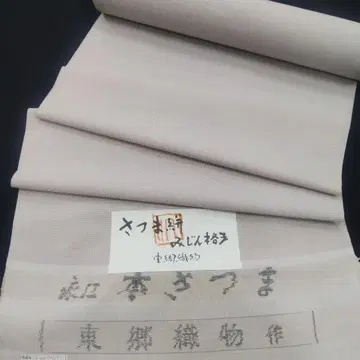 さつま絣
みじん格子
東郷織物
永江 本さつま
東郷織物作